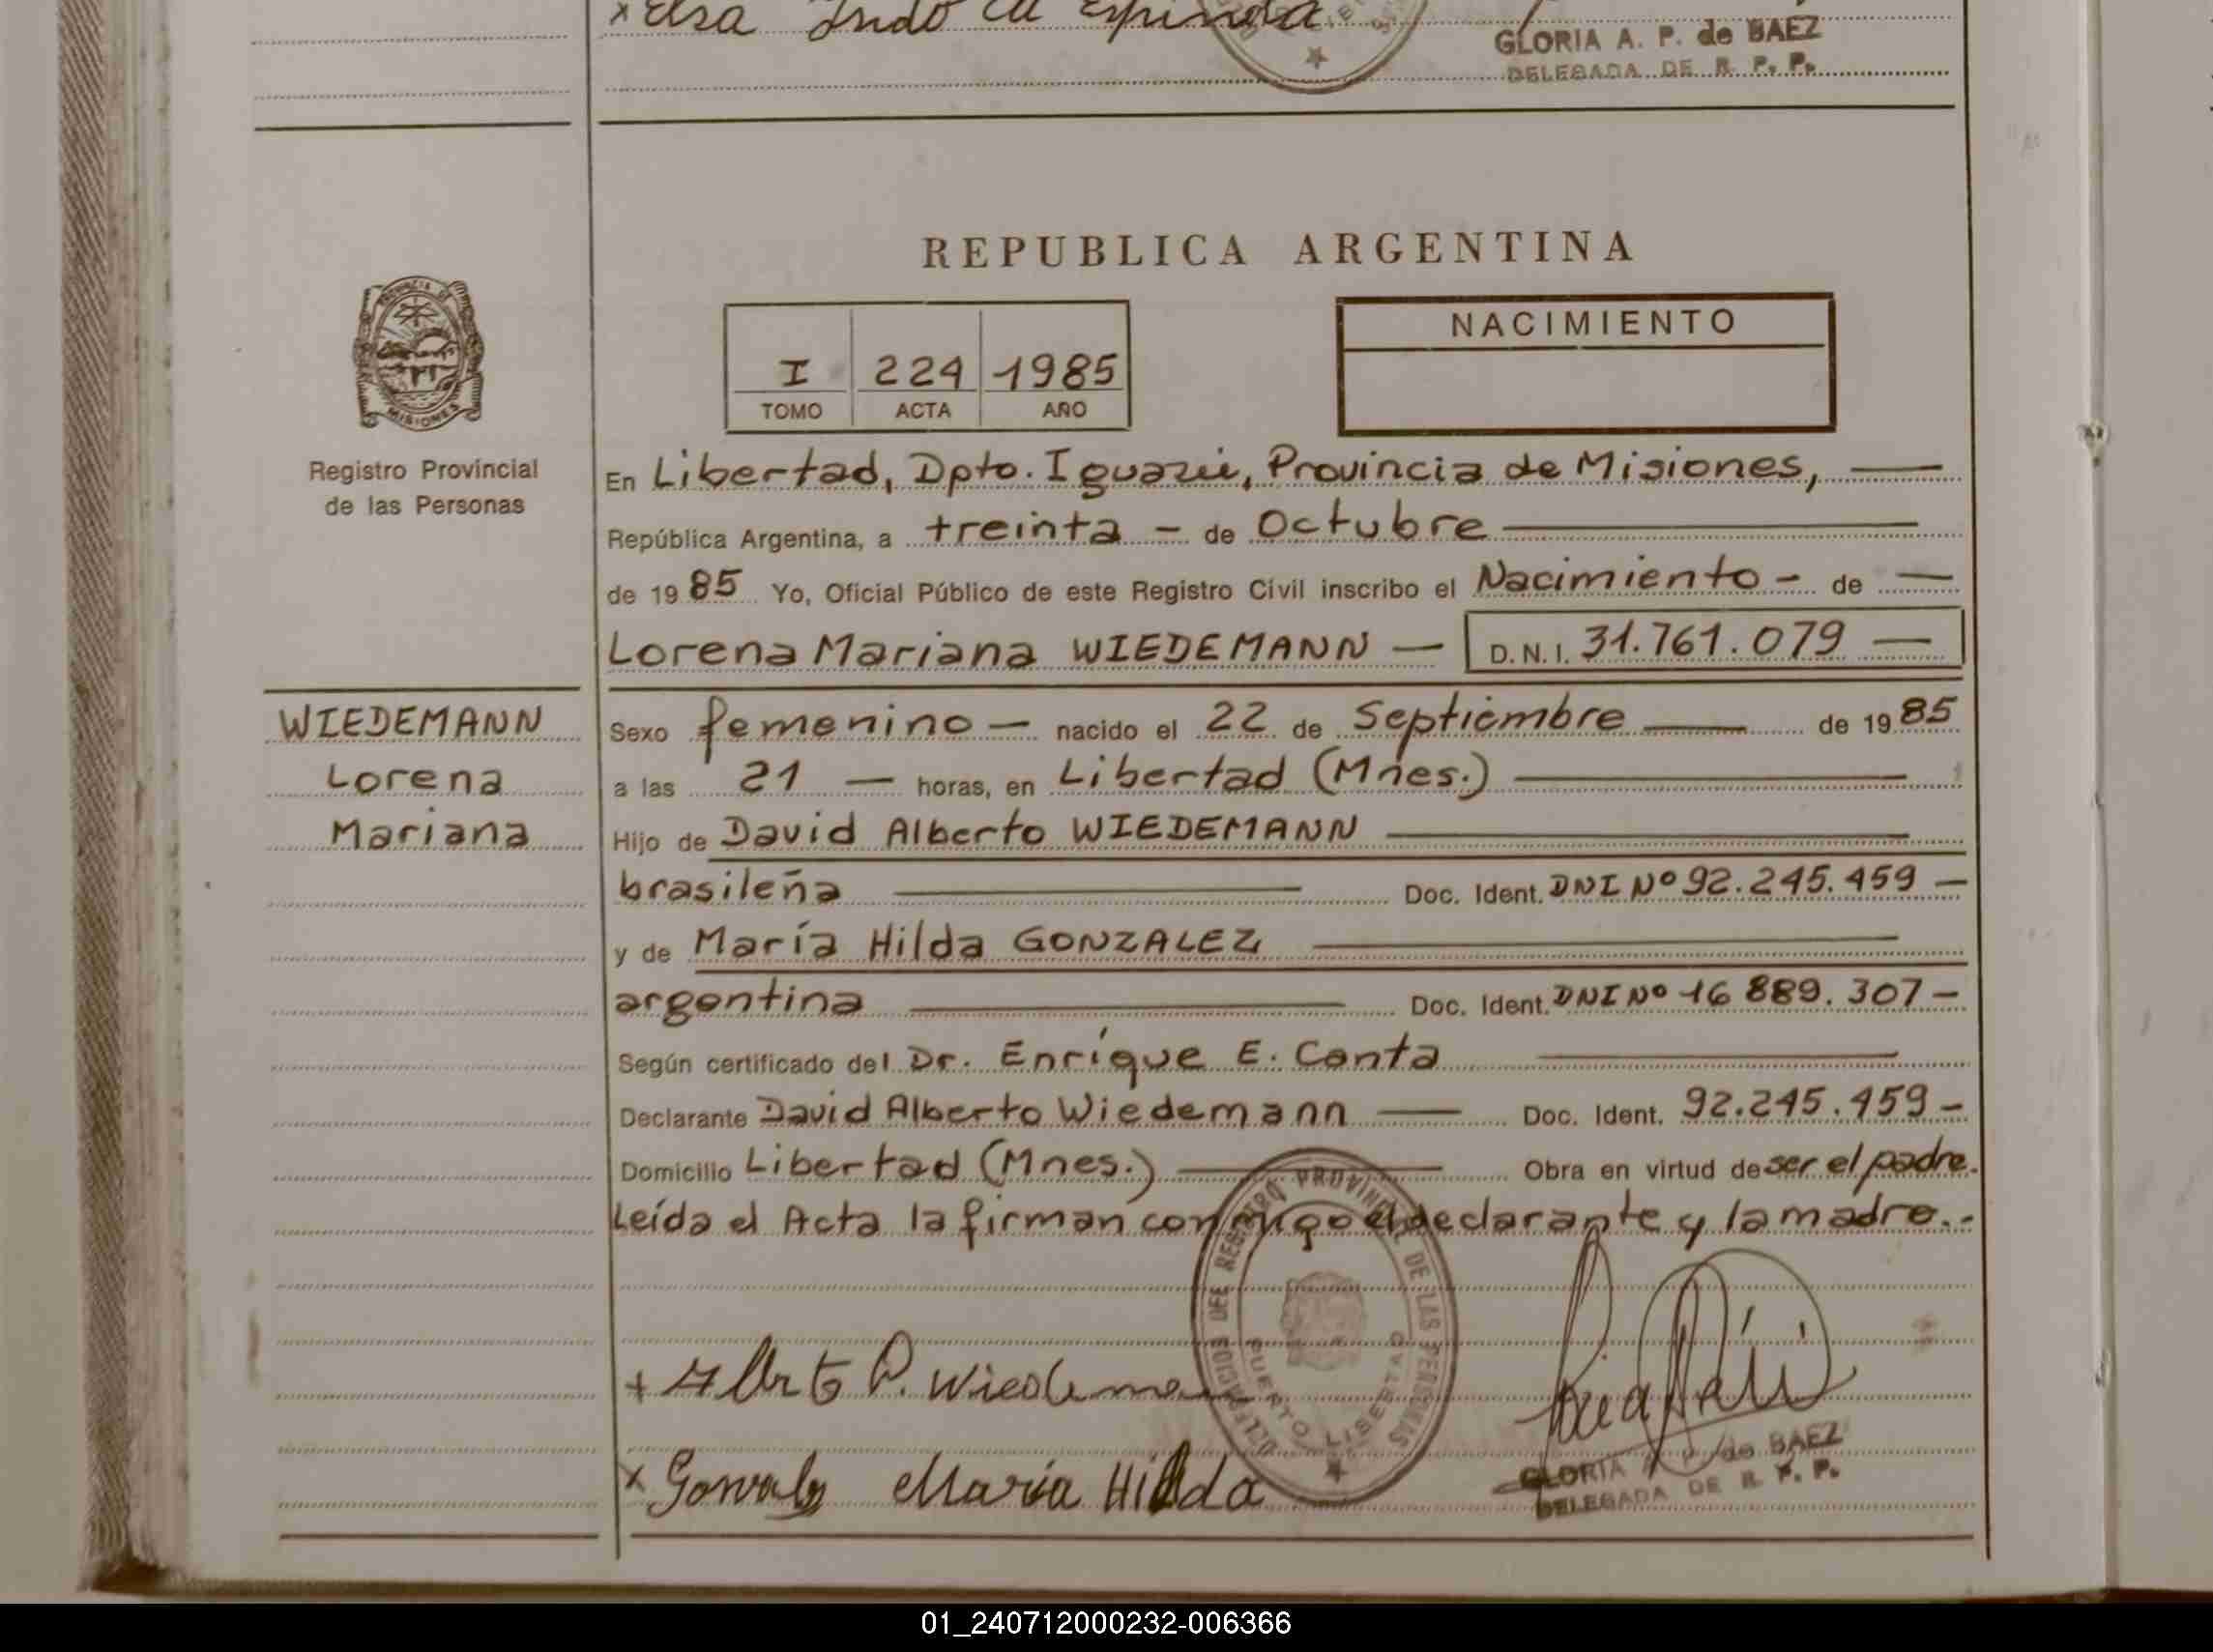 x Elsa Indo ca Espinola
GLORIA A. P. de BAEZ
DELEGADA DE R. P. P.
REPUBLICA ARGENTINA
PROVINCIA DE
MISIONES
Registro Provincial
de las Personas
I 224 1985
TOMO ACTA AÑO
NACIMIENTO
En Libertad, Dpto. Iguazú, Provincia de Misiones,
República Argentina, a treinta - de Octubre
de 1985 Yo, Oficial Público de este Registro Civil inscribo el Nacimiento - de
Lorena Mariana WIEDEMANN — D.N.I. 31.761.079 —
WIEDEMANN
Lorena
Mariana
Sexo femenino — nacido el 22 de Septiembre — de 1985
a las 21 — horas, en Libertad (Mnes.)
Hijo de David Alberto WIEDEMANN
brasileña — Doc. Ident. DNI Nº 92.245.459 —
y de María Hilda GONZALEZ
argentina — Doc. Ident. DNI Nº 16 889.307 -
Según certificado del Dr. Enríque E. Canta
Declarante David Alberto Wiedemann — Doc. Ident. 92.245.459 -
Domicilio Libertad (Mnes.) — Obra en virtud de ser el padre.
Leída el Acta la firman conmigo el declarante y la madre.-
REGISTRO PROVINCIAL DE LAS PERSONAS
PUERTO LIBERTAD
+ Alberto D. Wiedeman
x Gonzalez María Hilda
GLORIA A. P. de BAEZ
DELEGADA DE R. P. P.
01_240712000232-006366